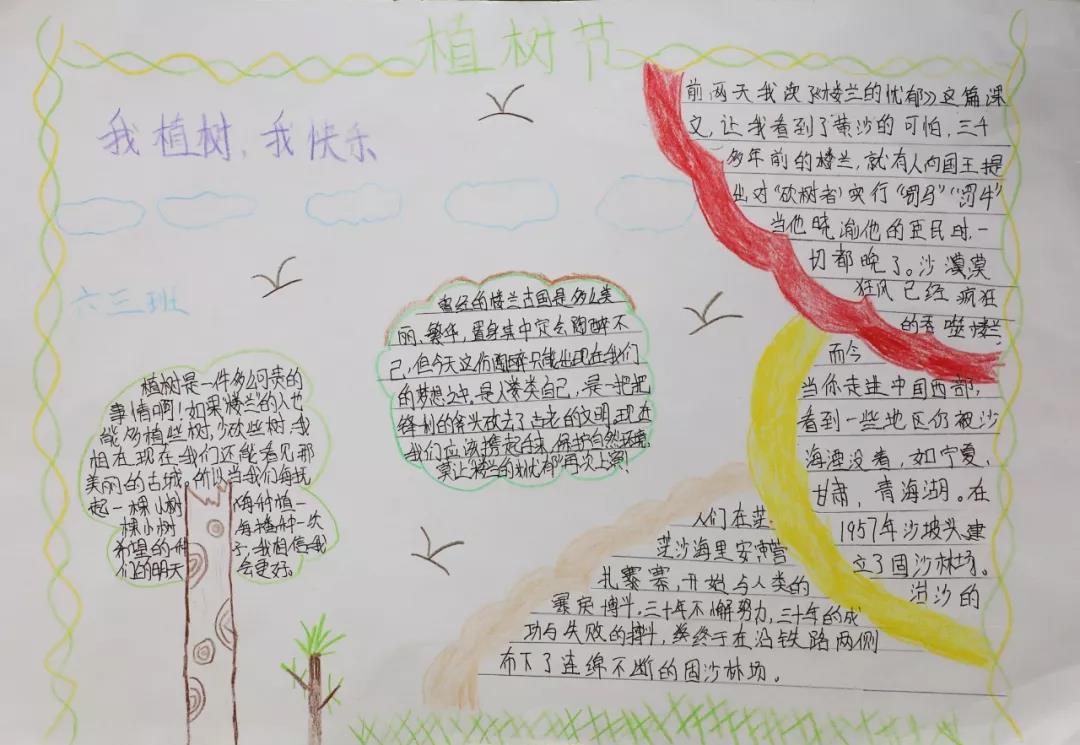 植树节
我植树，我快乐
六三班
前两天我读了《楼兰的忧郁》这篇课
文，让我看到了黄沙的可怕，三千
多年前的楼兰，就有人向国王提
出对“砍树者”实行“罚马”“罚牛”
当他晓谕他的臣民时，一
切都晚了。沙漠漠
狂风已经疯狂
的吞噬楼兰
而今
当你走进中国西部，
看到一些地区仍被沙
海湮没着，如宁夏、
甘肃，青海湖。在
1957年沙坡头建
立了固沙林场。
治沙的
人们在茫
茫沙海里安冲营
扎寨寨，开始与人类的
艰苦博斗。三十年不懈努力，三十年的成
功与失败的搏斗，终终于在沿铁路两侧
布下了连绵不断的固沙林场。
曾经的楼兰古国是多么美
丽、繁华，置身其中定会陶醉不
己，但今天这份陶醉只能出现在我们
的梦想之中。是人类类自己，是一把把
锋利的斧头砍去了古老的文明。现在
我们应该携起手来，保护自然环境
莫让“楼兰的忧郁”再次上演！
植树是一件多么可贵的
事情啊！如果“楼兰”的人也
能多植些树，少砍些树，我
相在现在我们还能看见那
美丽的古城。所以当我们每抚
起一棵小树
每种植一
棵小树
每播种一次
希望的种
子，我相信我
们的明天
会更好。